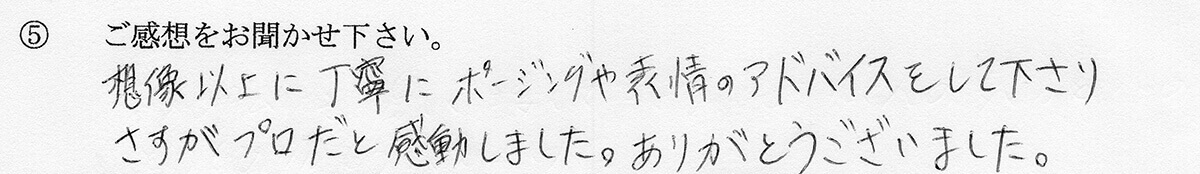 ⑤ ご感想をお聞かせ下さい。
想像以上に丁寧にポージングや表情のアドバイスをして下さり
さすがプロだと感動しました。ありがとうございました。